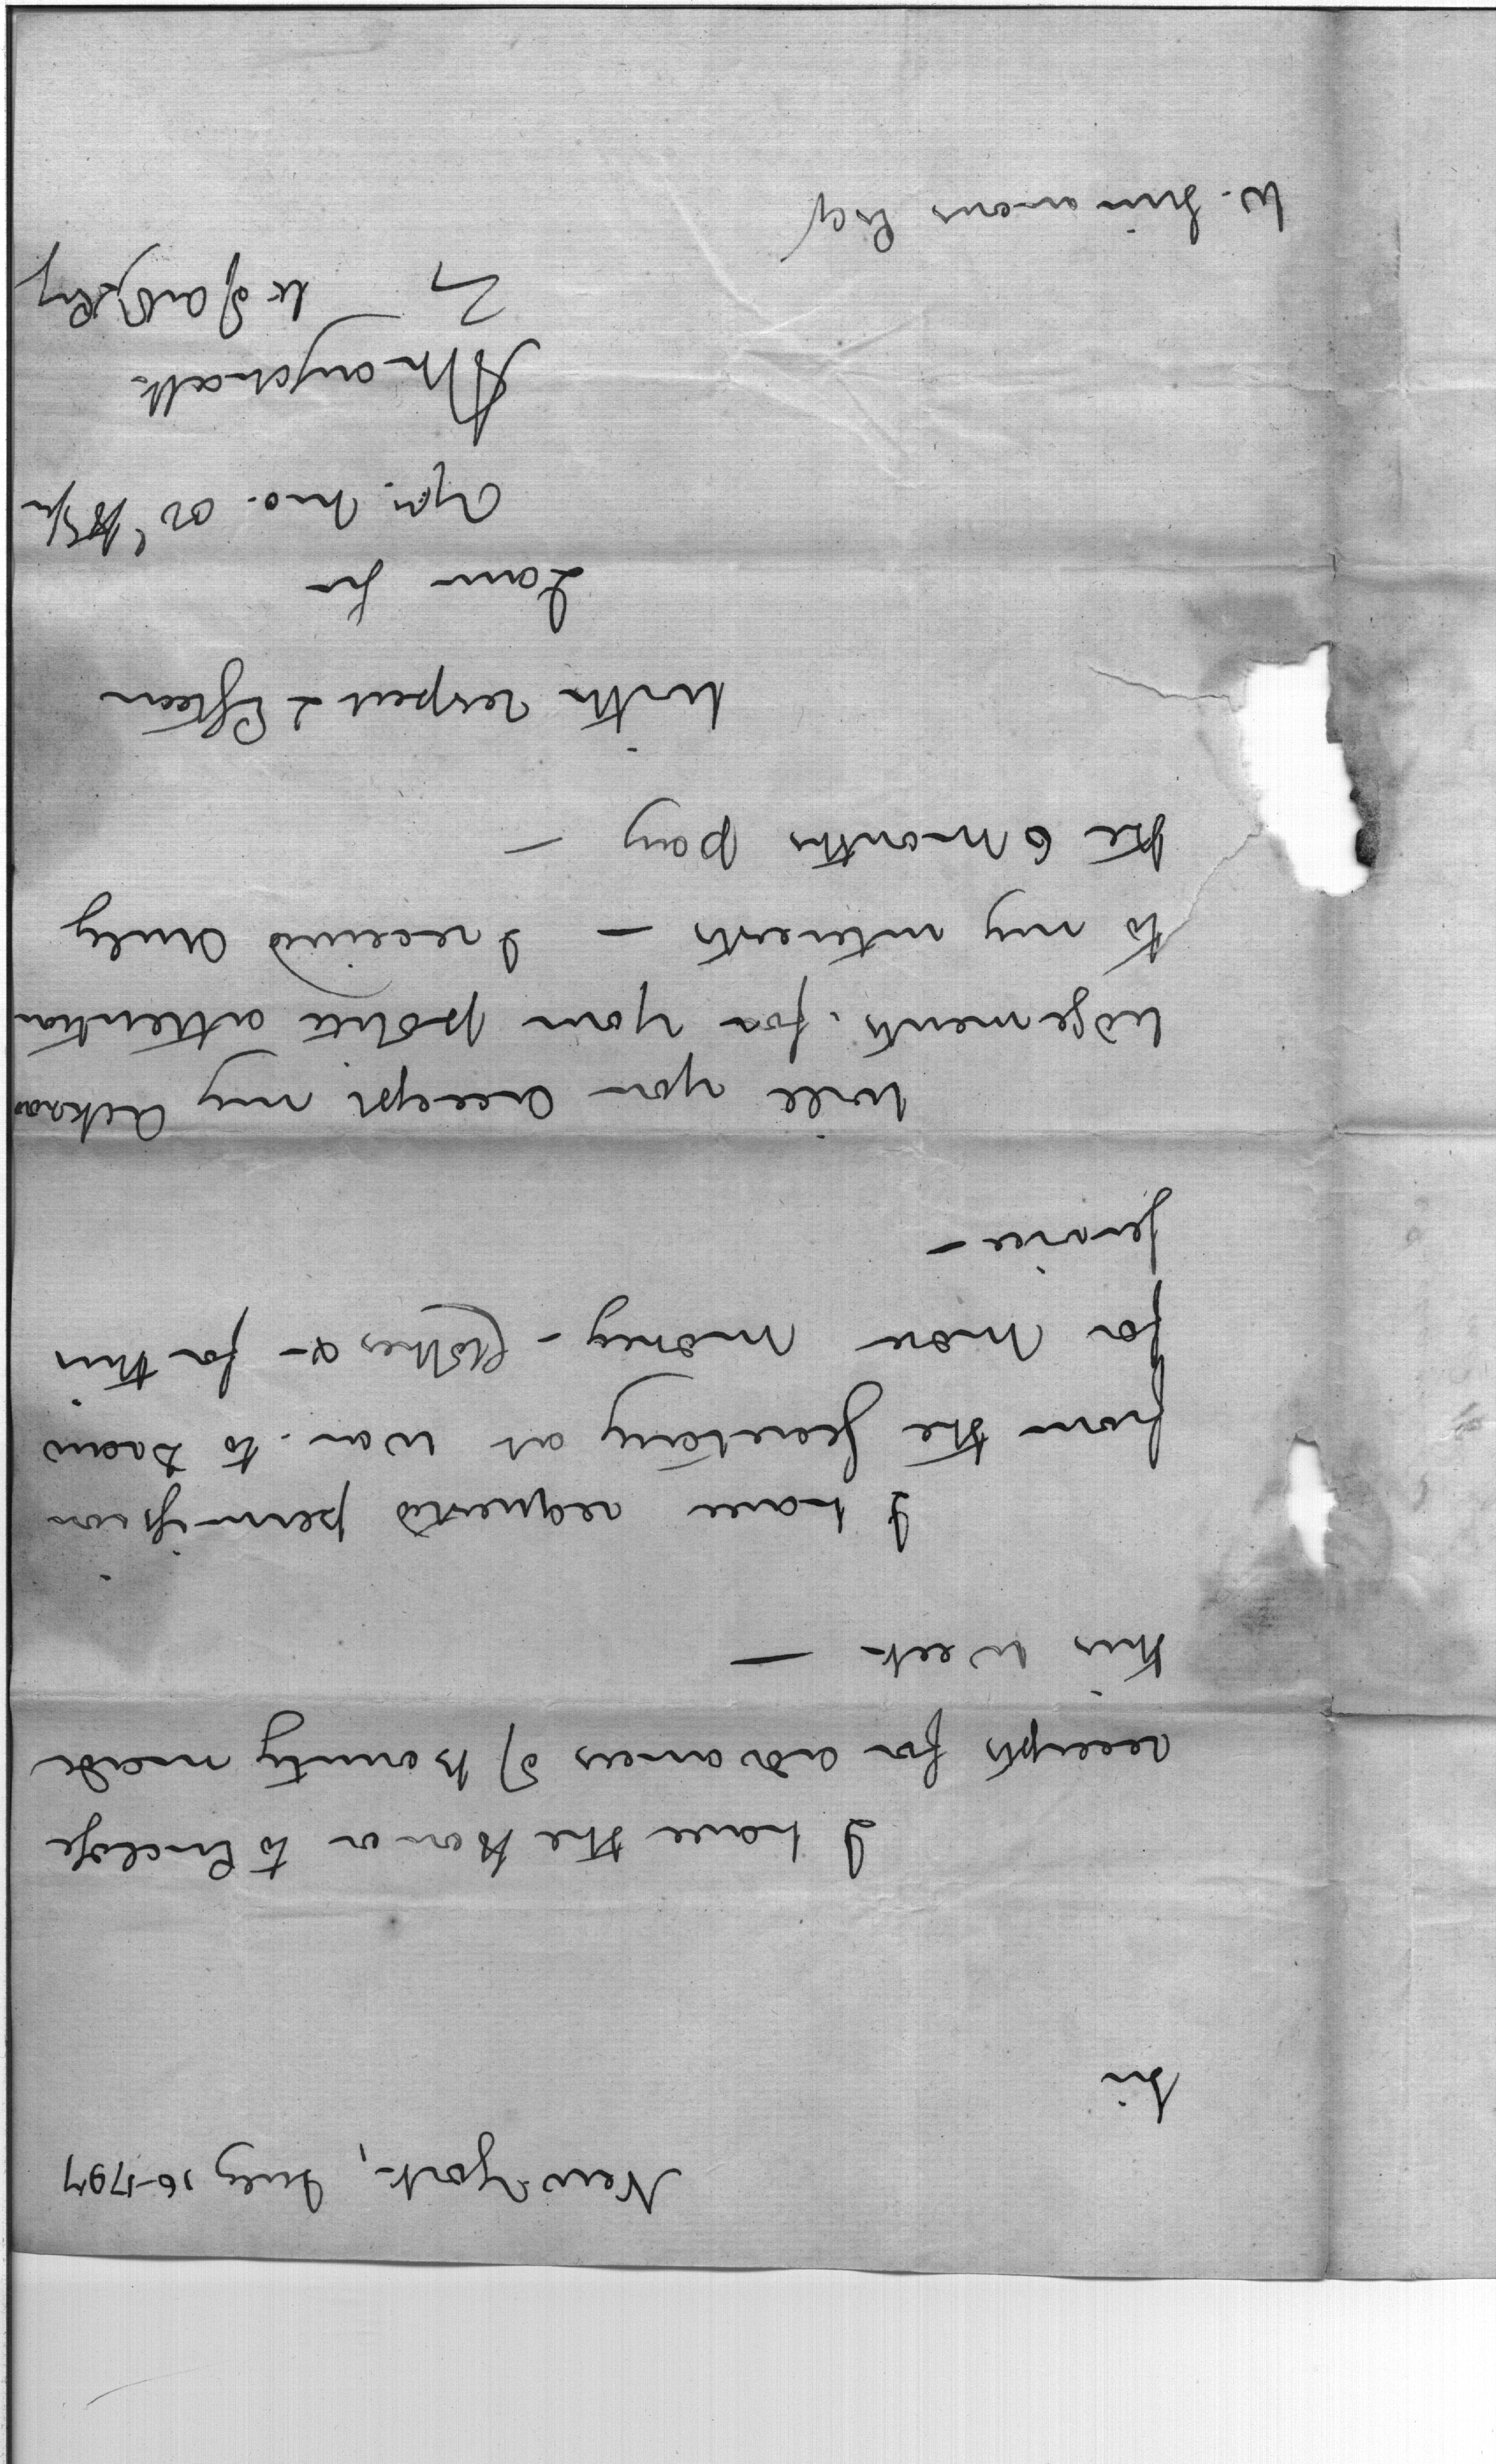 New York, July 16-1797
Sir
I have the Honor to Enclose
receipts for advances of Bounty made
this week —
I have requested permission
from the Secretary at War. to draw
for more money - Clothes & - for this
service -
Will you accept my Acknow
ledgements. for your polite attention
to my interests - I received duly
the 6 Months pay -
With respect & Esteem
I am Sir
Your mo. ob. H Sr
of Art & Eng
W. Simmons Esq